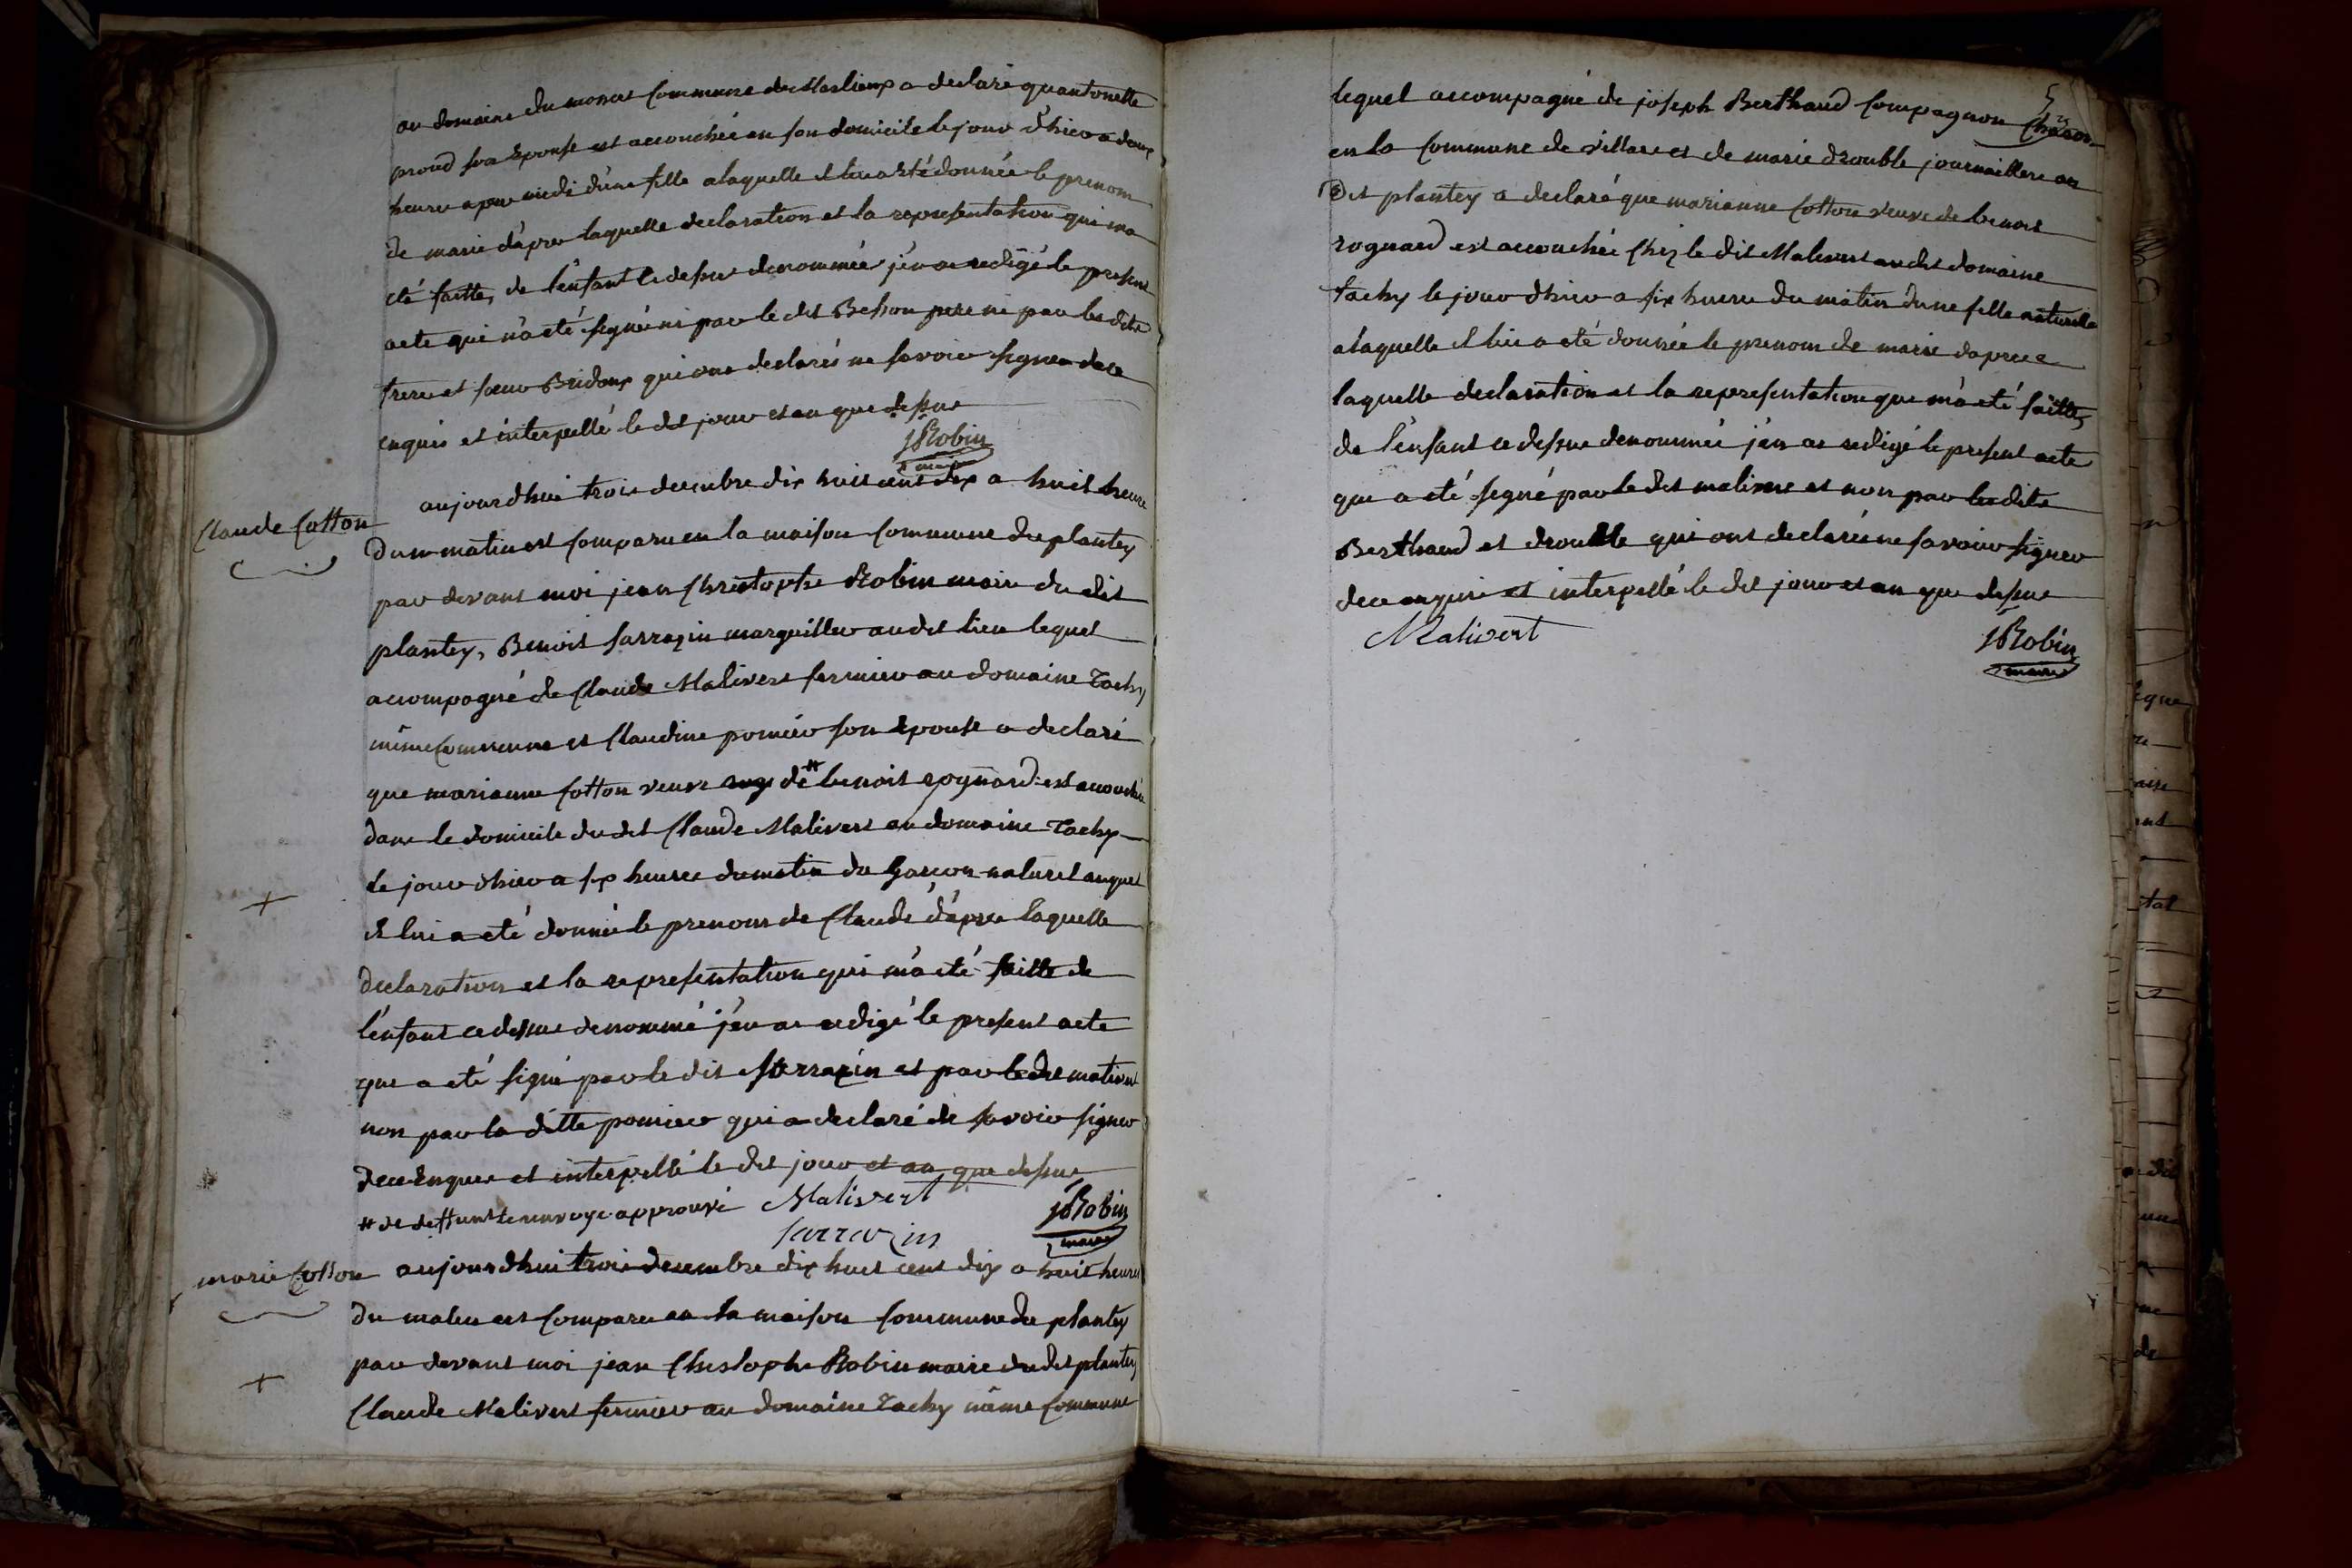 au domaine du commune de Marlieux a declaré quantonette
proud son Epouse est accouchée en son domicile le jour d'hier a deux
heures apres midi d'une fille a laquelle il lui a été donnée le prenom
de marie d'apres laquelle declaration et la representation qui m'a
été faitte, de l'enfant ci dessus denommée j'en ai redigé le present
acte qui n'a été signé ni par le dit Besson pere ni par les dits
frere et sœur Bridoux qui ont declarés ne savoir signer de ce
enquis et interpellé le dit jour et an que dessus
jRobin
maire
Claude Cotton
aujourdhui trois decembre dix huit cent dix a huit heure
du matin est comparu en la maison commune du plantey
par devant moi jean Christophe Robin maire du dit
plantey, Benoit Sarrazin marguillier au dit lieu lequel
accompagné de Claude Malivert fermier au domaine Tachy
même commune et Claudine pomier son Epouse a declaré
que marianne Cotton veuve de # benoit rognard est accouchée
dans le domicile du dit Claude Malivert au domaine Tachy
le jour d'hier a six heures du matin du garçon naturel auquel
il lui a été donné le prenom de Claude d'apres laquelle
+
declaration et la representation qui m'a été faitte de
l'enfant ci dessus denommé j'en ai redigé le present acte
qui a été signé par le dit Sarrazin et par le dit malivert
non par la ditte pomier qui a declaré de savoir signer
de ce Enquis et interpellé le dit jour et an que dessus
# de deffunt le renvoye approuvé Malivert jRobin
Sarrazin maire
marie Cotton
aujourdhui trois decembre dix huit cent dix a huit heures
du matin est comparu en la maison commune du plantey
par devant moi jean Christophe Robin maire du dit plantey
+
Claude Malivert fermier au domaine Tachy même commune
5
lequel accompagné de joseph Berthaud compagnon
en la commune de villars et de marie drouble journaillere au
dit plantey a declaré que marianne Cotton veuve de benoit
rognard est accouchée chez le dit Malivert au dit domaine
tachy le jour d'hier a six heures du matin d'une fille naturelle
a laquelle il lui a été donnée le prenom de marie d'apres
laquelle declaration et la representation que m'a été faitte,
de l'enfant ci dessus denommée j'en ai redigé le present acte
qui a été signé par le dit malivert et non par les dits
Berthaud et drouble qui ont declarés ne savoir signer
de ce enquis et interpellé le dit jour et an que dessus
Malivert jRobin
maire